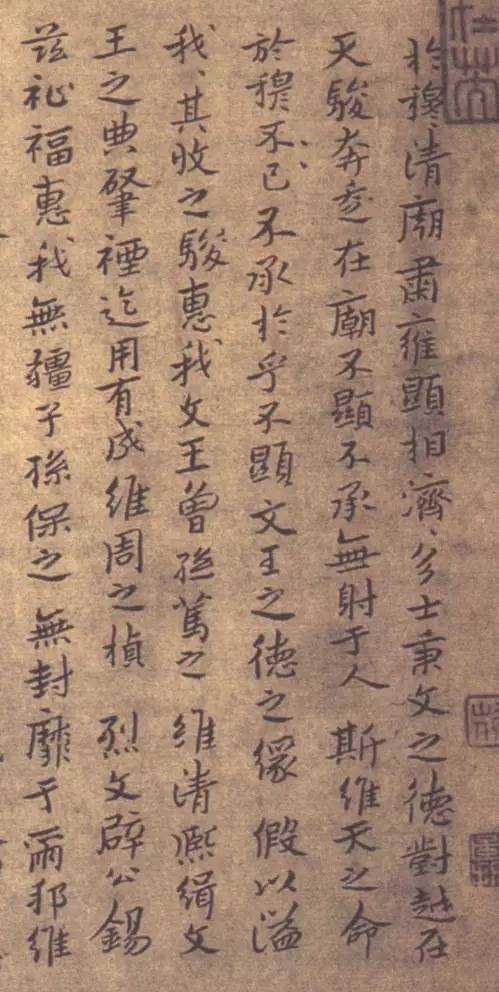 於穆、清廟肅雍顯相濟、多士秉文之德對越在
天駿奔走在廟不顯不承無射于人 斯維天之命
於穆不已不承於乎不顯文王之德之 假以溢
我、其收之駿惠我文王曾孫篤之 維清熙緝文
王之典肇禋迄用有成維周之楨 烈文辟公錫
茲祉福惠我無疆子孫保之 無封靡于爾邦維